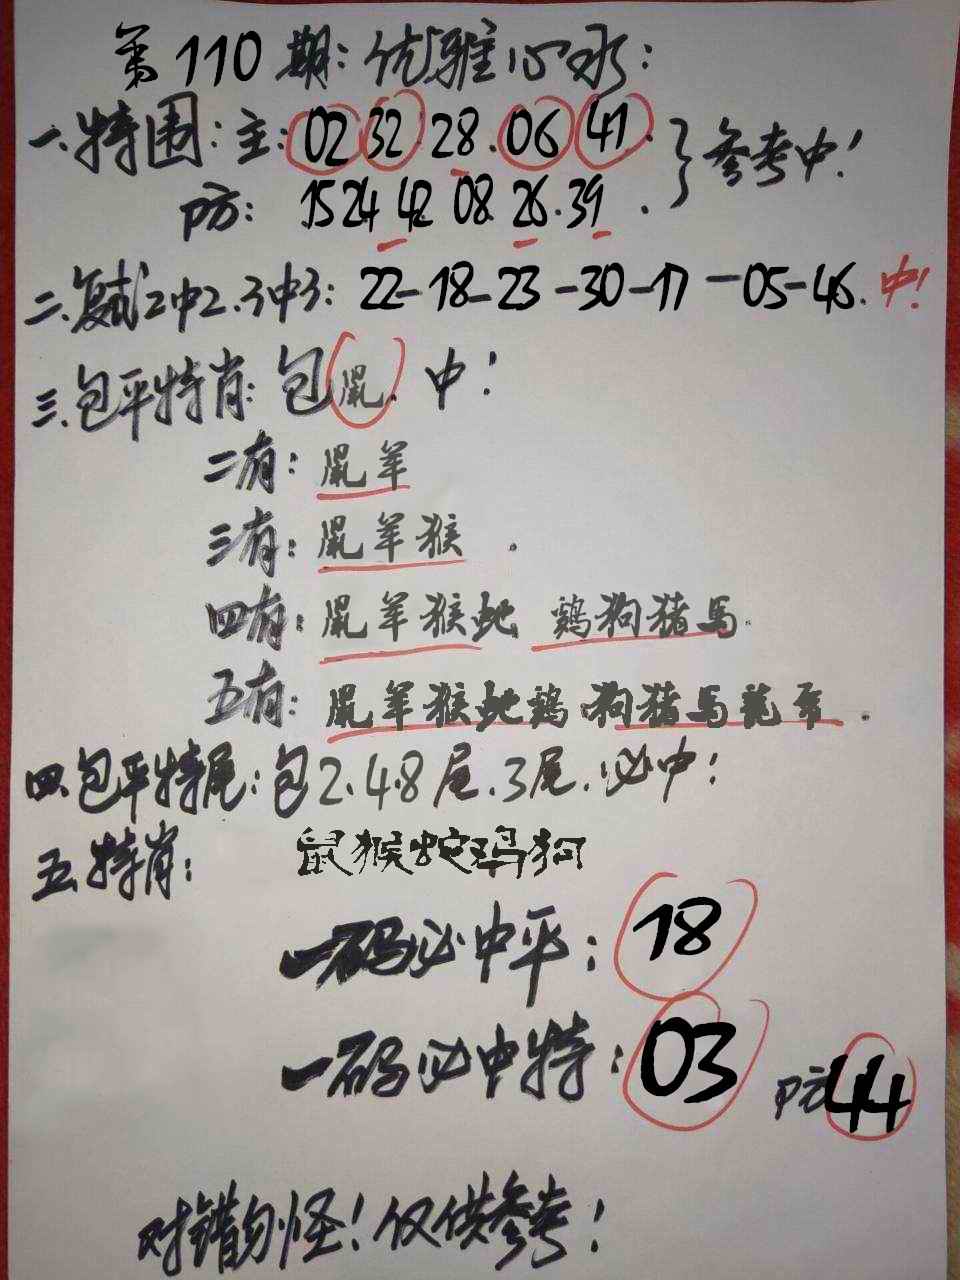 第110期：优雅心水：
一.特围：主：02 32 28.06 41. 参考中！
防：15 24 42 08 26.39.
二.复式2中2.3中3：22-18-23-30-17-05-46.中！
三.包平特肖：包鼠.中！
二有：鼠羊
三有：鼠羊猴.
四有：鼠羊猴蛇 鸡狗猪马
五有：鼠羊猴蛇鸡狗猪马龙.
四.包平特尾：包2.4.8尾.3尾.必中！
五.特肖：鼠猴蛇鸡狗
一码必中平：18
一码必中特：03 防44
对错勿怪！仅供参考！